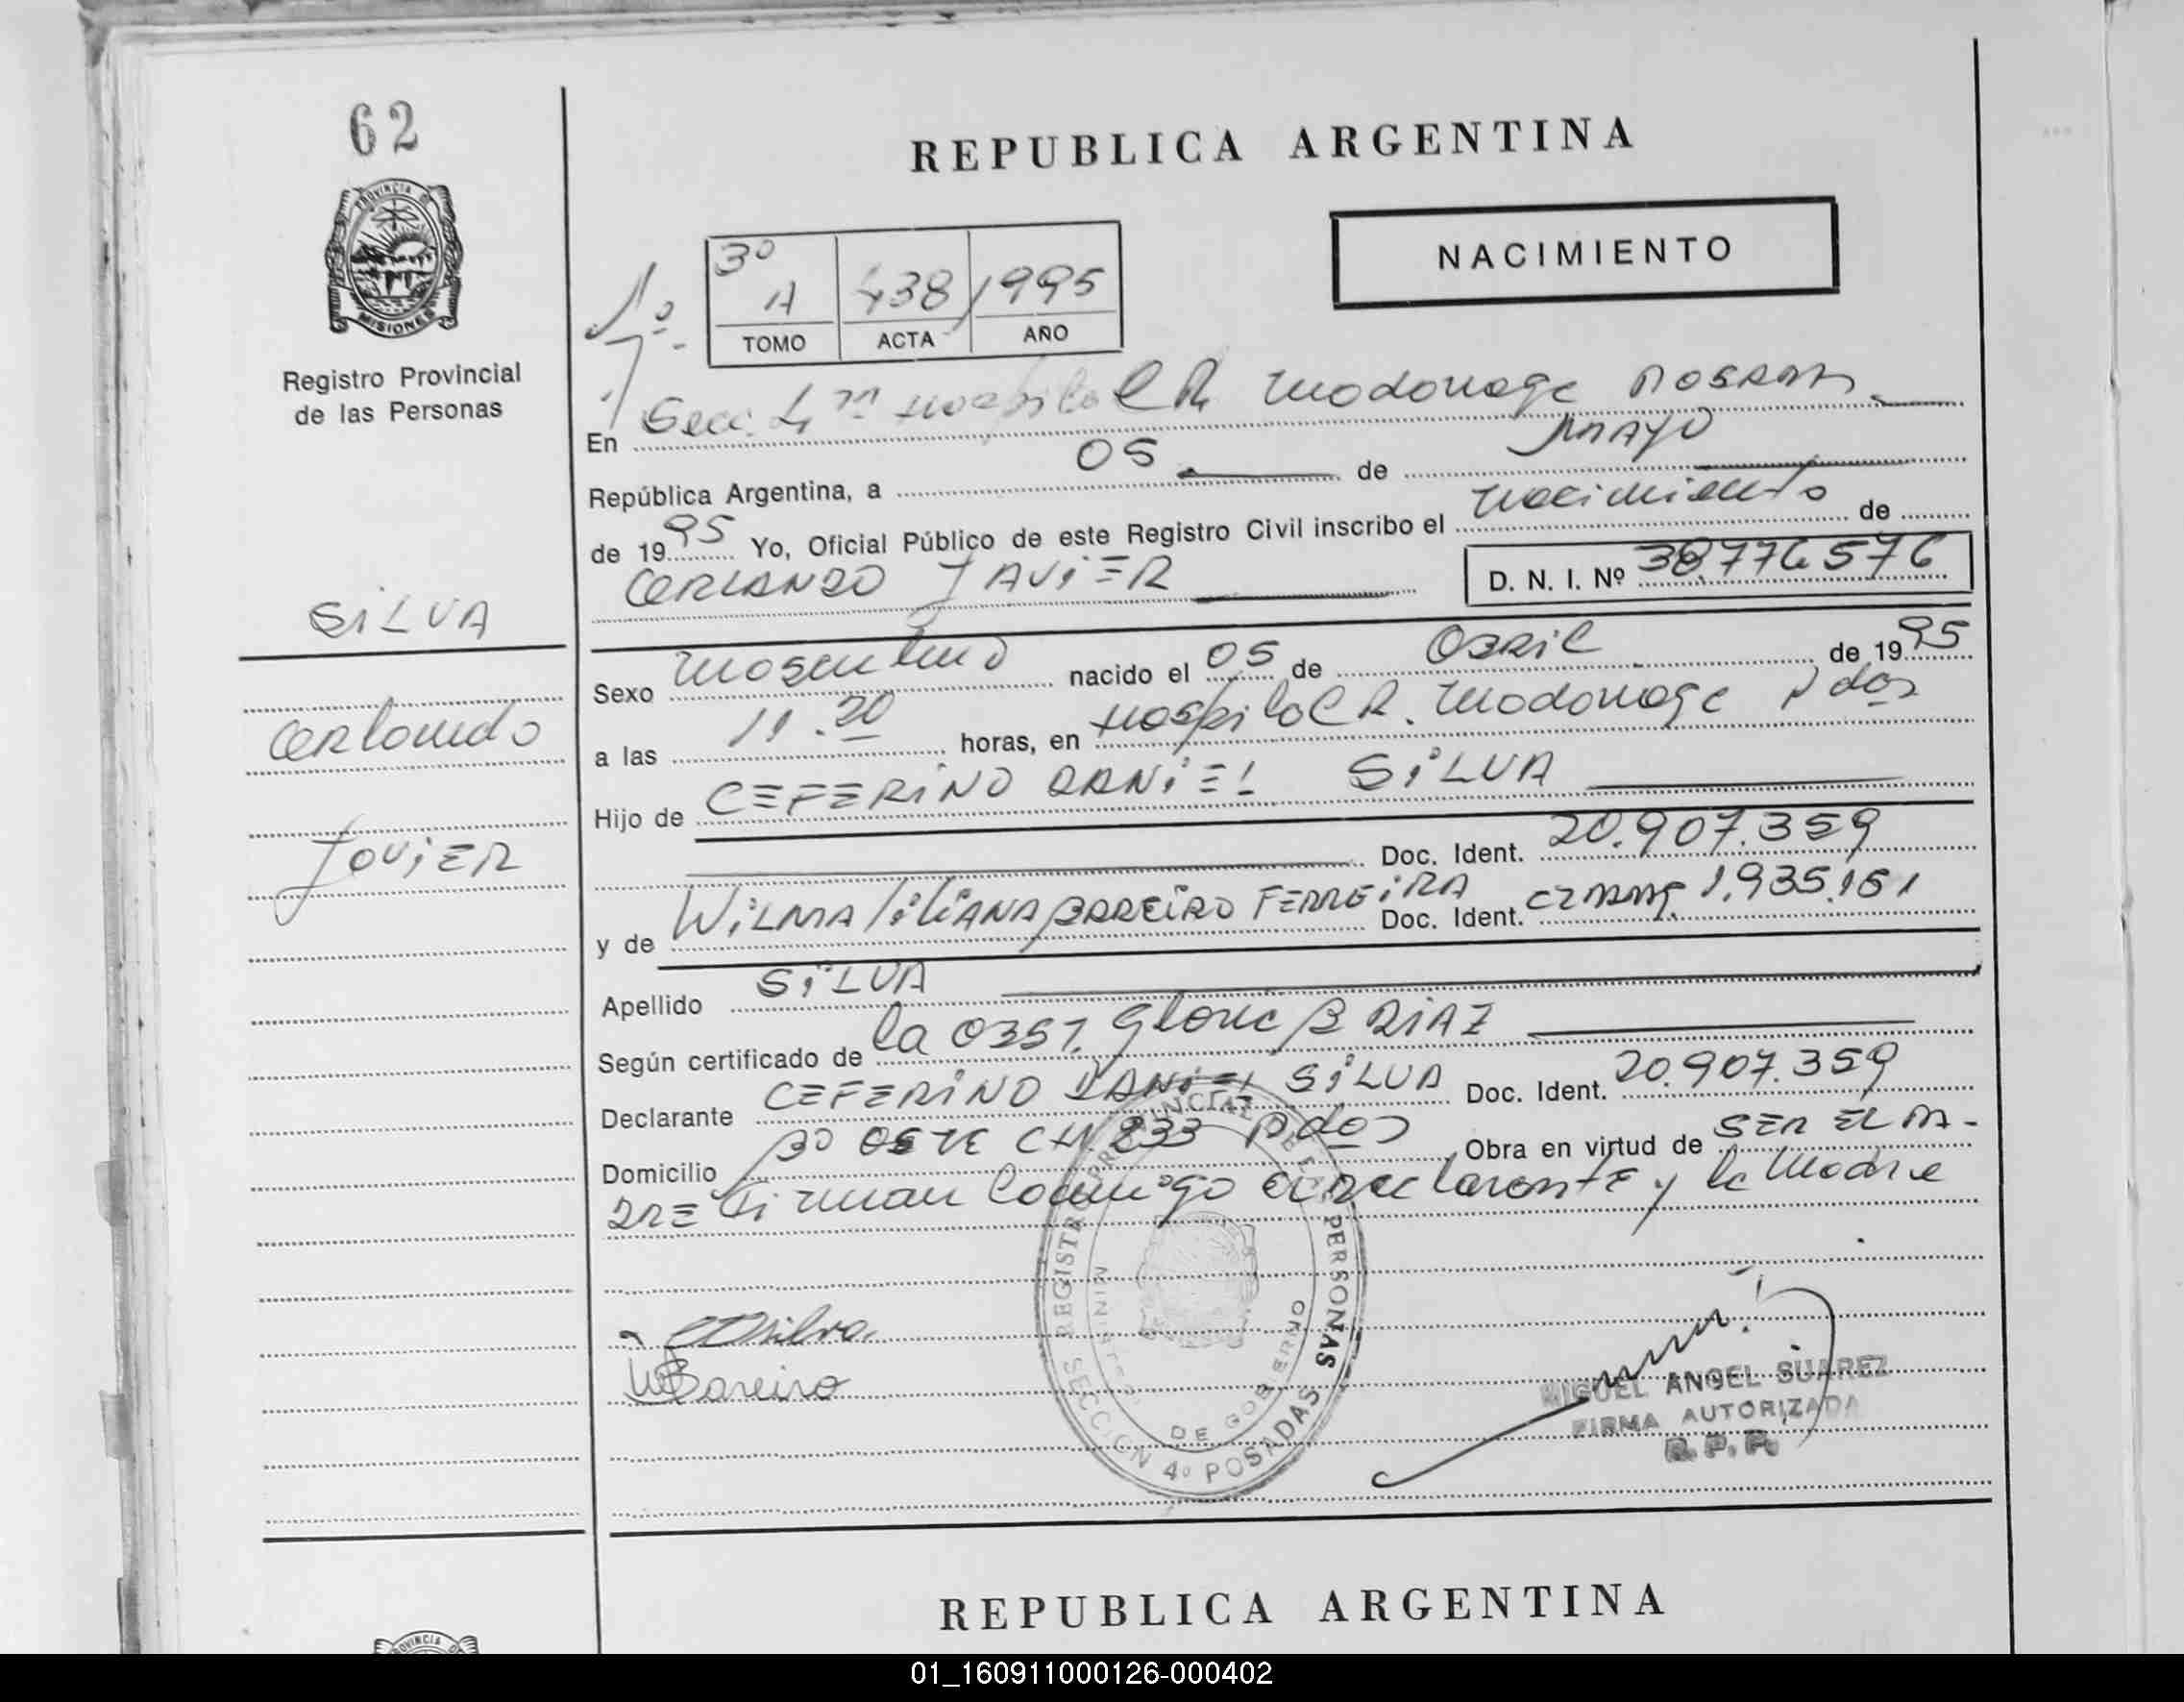 62
REPUBLICA ARGENTINA
PROVINCIA DE
MISIONES
Registro Provincial
de las Personas
NACIMIENTO
3º
A 438 1995
TOMO ACTA AÑO
1º
En Secc. 4ta Hospital R Madariaga Posadas
República Argentina, a 05 de mayo
de 1995 Yo, Oficial Público de este Registro Civil inscribo el nacimiento de
ORLANDO JAVIER D. N. I. Nº 38.776.576
SILVA
Orlando
Javier
Sexo masculino nacido el 05 de Abril de 1995
a las 11.20 horas, en Hospital R. Madariaga Pdas
Hijo de CEFERINO DANIEL SILVA
Doc. Ident. 20.907.359
y de WILMA LILIANA BAREIRO FERREIRA Doc. Ident. 1.935.151
Apellido SILVA
Según certificado de la OBST. Gloria B DIAZ
Declarante CEFERINO DANIEL SILVA Doc. Ident. 20.907.359
Domicilio Bº OESTE CH. 233 Pdas Obra en virtud de SER EL PA-
DRE Firman Conmigo el declarante y la Madre
REGISTRO PROVINCIAL DE LAS PERSONAS
MINISTERIO DE GOBIERNO
SECCION 4º POSADAS
CDSilva
WBareiro
MIGUEL ANGEL SUAREZ
FIRMA AUTORIZADA
R. P. P.
REPUBLICA ARGENTINA
PROVINCIA DE
01_160911000126-000402